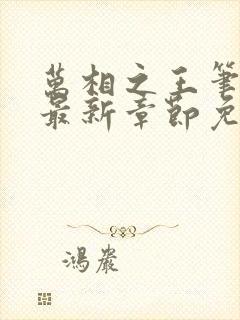 萬相之王筆
最新章節免
鴻嚴